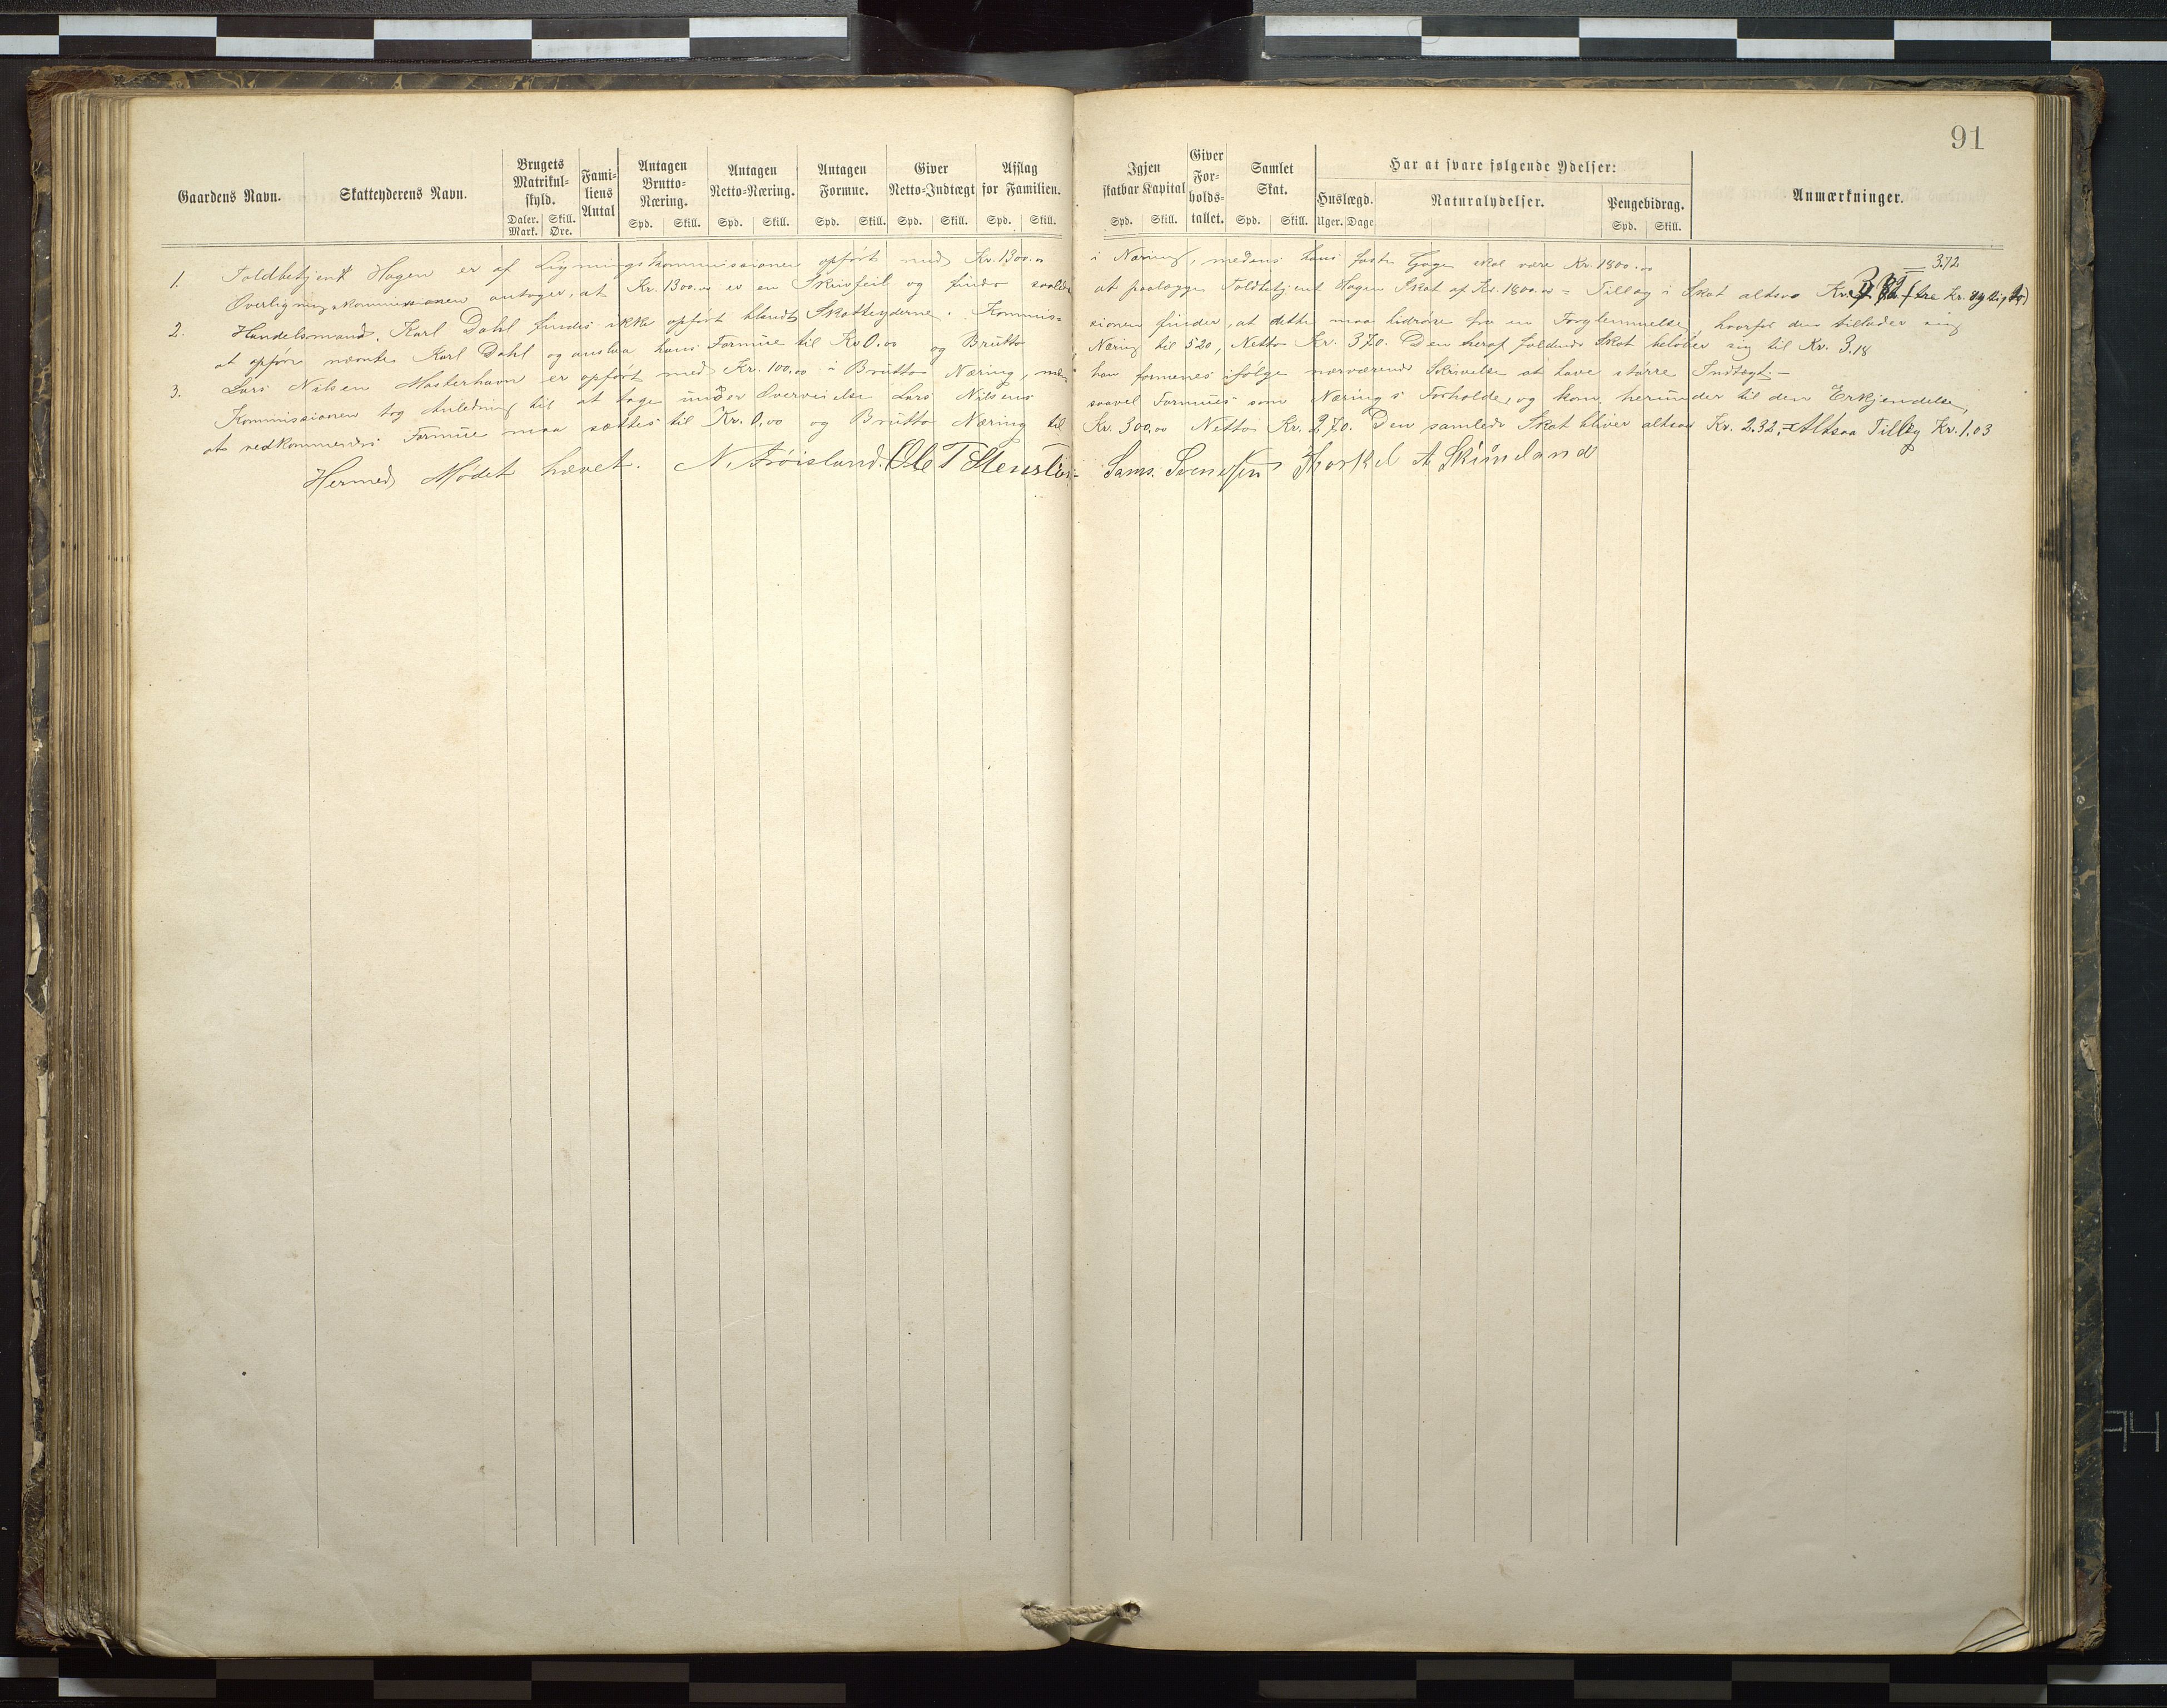 91
Gaardens Navn. Skatteyderens Navn. Brugets Matrikulskyld. Daler. Mark. Skill. Øre. Familiens Antal Antagen Brutto-Næring. Spd. Skill. Antagen Netto-Næring. Spd. Skill. Antagen Formue. Spd. Skill. Giver Netto-Indtægt Spd. Skill. Afslag for Familien. Spd. Skill. Igjen skatbar Kapital Spd. Skill. Giver Forholdstallet. Samlet Skat. Spd. Skill. Har at svare følgende Ydelser: Huslægd. Uger. Dage Naturalydelser. Pengebidrag. Spd. Skill. Anmærkninger.
1. Toldbetjent Hagen er af Ligningskommissionen opført med Kr. 1300.00 i Næring, medens hans faste Gage skal være Kr. 1800.00 3.72
Overligningskommissionen antager, at Kr. 1300.00 er en Skrivfeil og finder saaledes at paalægge Toldbetjent Hagen Skat af Kr. 1800.00 = Tillæg i Skat altsaa Kr. 3.82 (tre Kr.
2. Handelsmand, Karl Dahl findes ikke opført blandt Skatteyderne. Kommissionen finder, at dette maa hidrøre fra en Forglemmelse, hvorfor den tillader sig
at opføre nævnte Karl Dahl og anslaa hans Formue til Kr 0.00 og Brutto Næring til 520, Netto Kr. 370. Den heraf faldende Skat beløber sig til Kr. 3.18
3. Lars Nilsen er opført med Kr. 100.00 i Brutto Næring, men han formenes ifølge nærværende Skrivelse at have større Indtægt. —
Kommissionen tog Anledning til at tage under Overveielse Lars Nilsens saavel Formues som Nærings Forholde, og kom herunder til den Erkjendelse,
at vedkommendes Formue maa sættes til Kr. 0,00 og Brutto Næring til Kr. 300,00 Netto Kr. 270. Den samlede Skat bliver altsaa Kr. 2.32. Altsaa Tillæg Kr. 1.03
Hermed Mødet hævet. N. Frøisland. Ole T Sams. Svendsen Thorkel A Skimeland